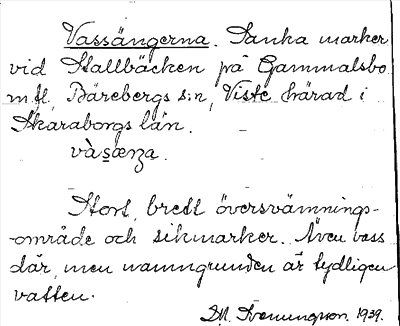 Vassängerna. Sanka marker
vid Stallbäcken på Gammalsbo
m.fl. Bärebergs s:n, Viste härad i
Skaraborgs län.
vàsæŋa.
Stort, brett översvämnings-
-område och sikmarker. Även vass
där, men namngrunden är tydligen
vatten.
1939.